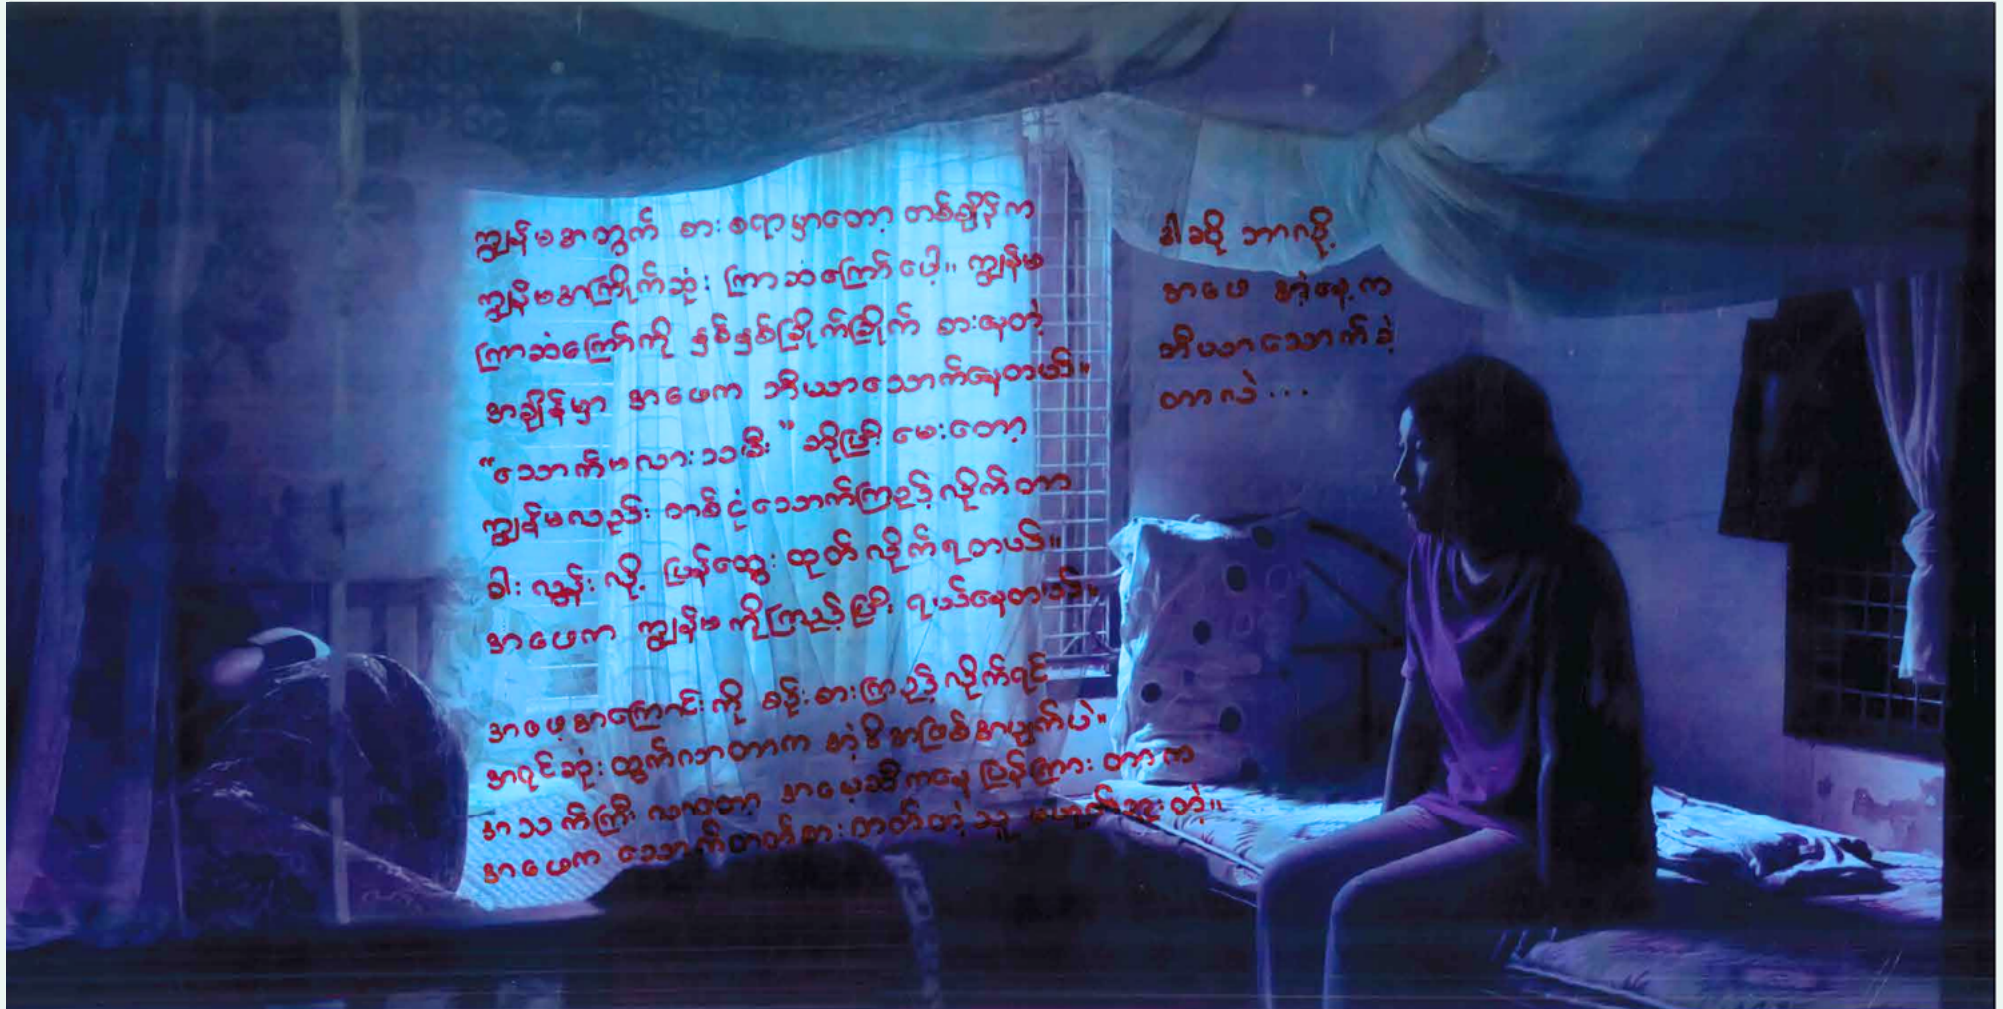 ကျွန်မအတွက် စားစရာမှာတော့ တစ်ချိန်က
ကျွန်မအကြိုက်ဆုံး ကြာဆံကြော်ပေါ့။ ကျွန်မ
ကြာဆံကြော်ကို နှစ်နှစ်ခြိုက်ခြိုက် စားနေတဲ့
အချိန်မှာ အဖေက ဘီယာသောက်နေတယ်။
“သောက်မလားသမီး” ဆိုပြီး မေးတော့
ကျွန်မလည်း တစ်ငုံသောက်ကြည့်လိုက်တာ
ခါးလွန်းလို့ ပြန်ထွေးထုတ်လိုက်ရတယ်။
အဖေက ကျွန်မကိုကြည့်ပြီး ရယ်နေတယ်။
အဖေ့အကြောင်းကို စဉ်းစားကြည့်လိုက်ရင်
အရင်ဆုံးထွက်လာတာက အဲ့ဒီအဖြစ်အပျက်ပဲ။
အသက်ကြီးလာတော့ အမေ့ဆီကနေ ပြန်ကြားတာက
အဖေက သောက်တတ်စားတတ်တဲ့သူ မဟုတ်ဘူးတဲ့။
ဒါဆို ဘာလို့
အဖေ အဲ့နေ့က
ဘီယာသောက်ခဲ့
တာလဲ...